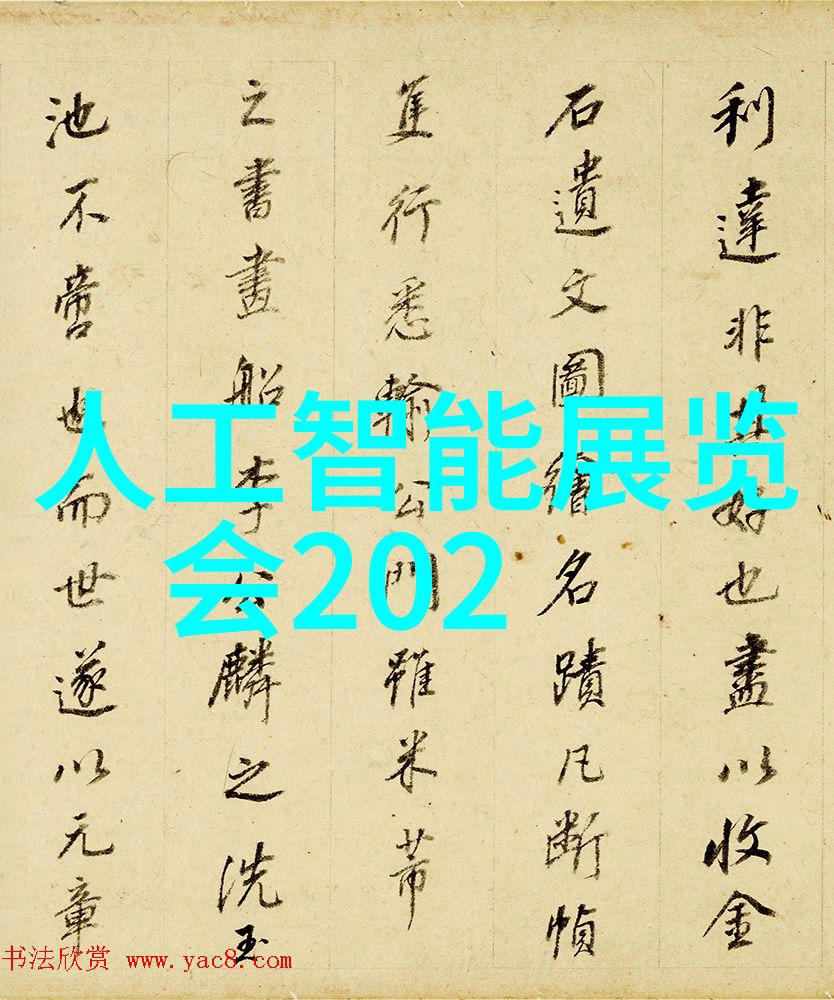 利達非其好也盡以收金
石遺文圖繪名蹟凡斷幀
隻行悉輸公門雖米芾
之書畫船李公麟之洗玉
池不啻也而世遂以元章
人工智能展览
会202
书法欣赏 www.yac8.com